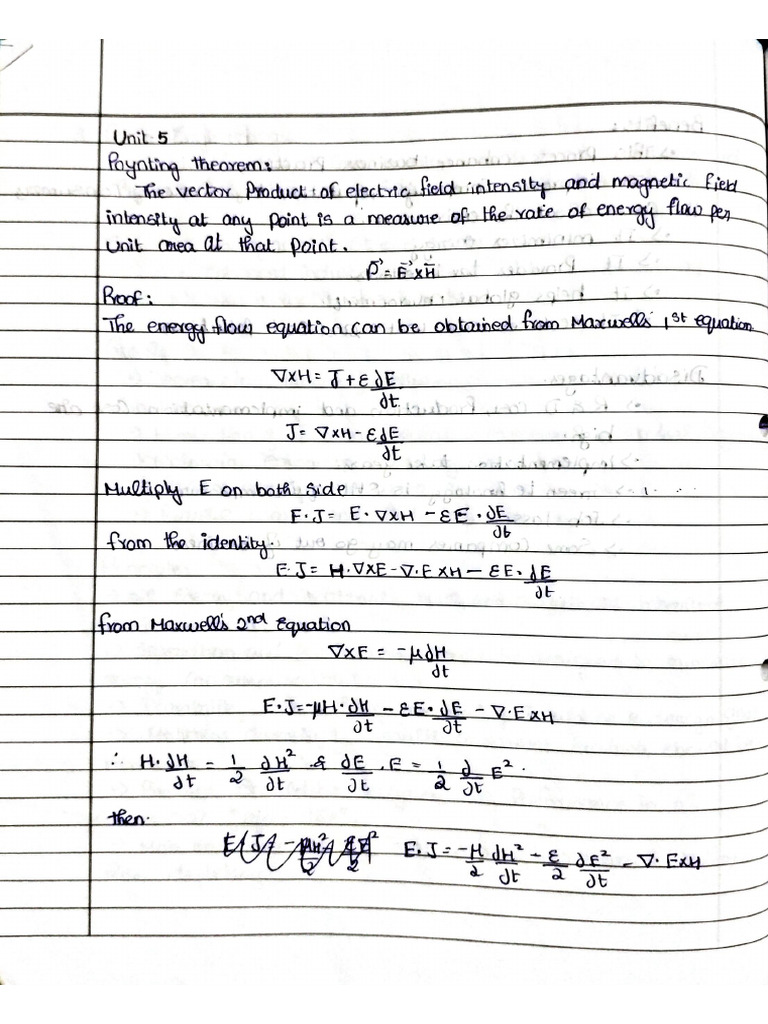 Unit 5
Poynting theorem:
The vector Product of electric field intensity and magnetic field
intensity at any point is a measure of the rate of energy flow per
unit area at that point.
P⃗ = E⃗ × H⃗
Proof:
The energy flow equation can be obtained from Maxwell's 1st equation
∇×H = J + ε ∂E/∂t
J = ∇×H - ε ∂E/∂t
Multiply E on both side
E·J = E·∇×H - εE·∂E/∂t
from the identity.
E·J = H·∇×E - ∇·E×H - εE·∂E/∂t
from Maxwell's 2nd Equation
∇×E = -μ∂H/∂t
E·J = -μH·∂H/∂t - εE·∂E/∂t - ∇·E×H
∴ H·∂H/∂t = 1/2 ∂H²/∂t & ∂E/∂t·E = 1/2 ∂/∂t E².
then.
E·J = -μ/2 ∂H²/∂t - ε/2 ∂E²/∂t - ∇·E×H